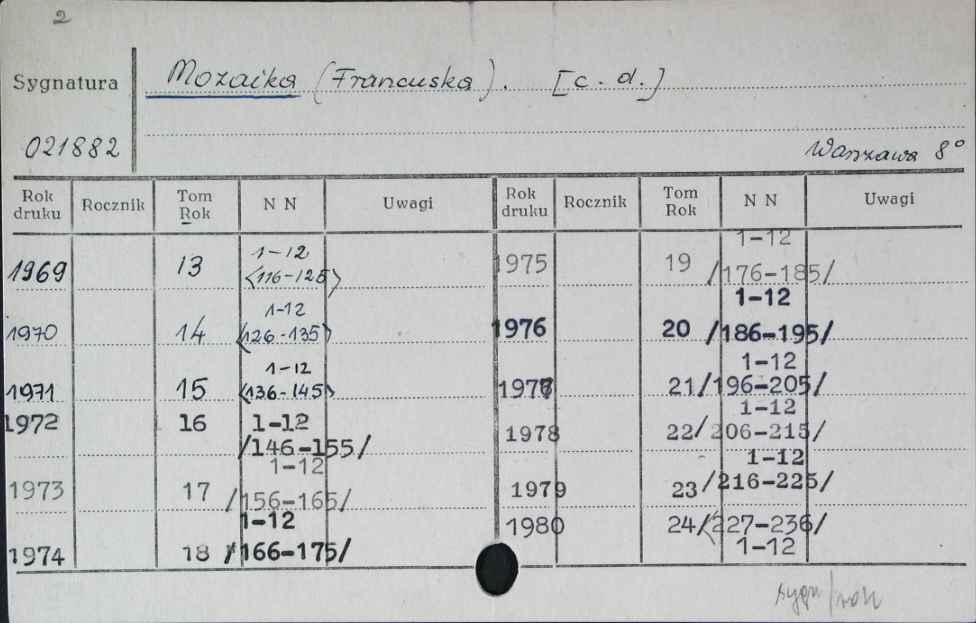 2
Sygnatura
Mozaika (Francuska). [c. d.]
021882
Warszawa 8°
Rok druku Rocznik Tom Rok N N Uwagi Rok druku Rocznik Tom Rok N N Uwagi
1969 13 1-12 <116-125>
1970 14 1-12 <126-135>
1971 15 1-12 <136-145>
1972 16 1-12 /146-155/
1973 17 1-12 /156-165/
1974 18 1-12 /166-175/
1975 19 1-12 /176-185/
1976 20 1-12 /186-195/
1977 21 1-12 /196-205/
1978 22 1-12 /206-215/
1979 23 1-12 /216-225/
1980 24 /227-236/ 1-12
sygn/rok